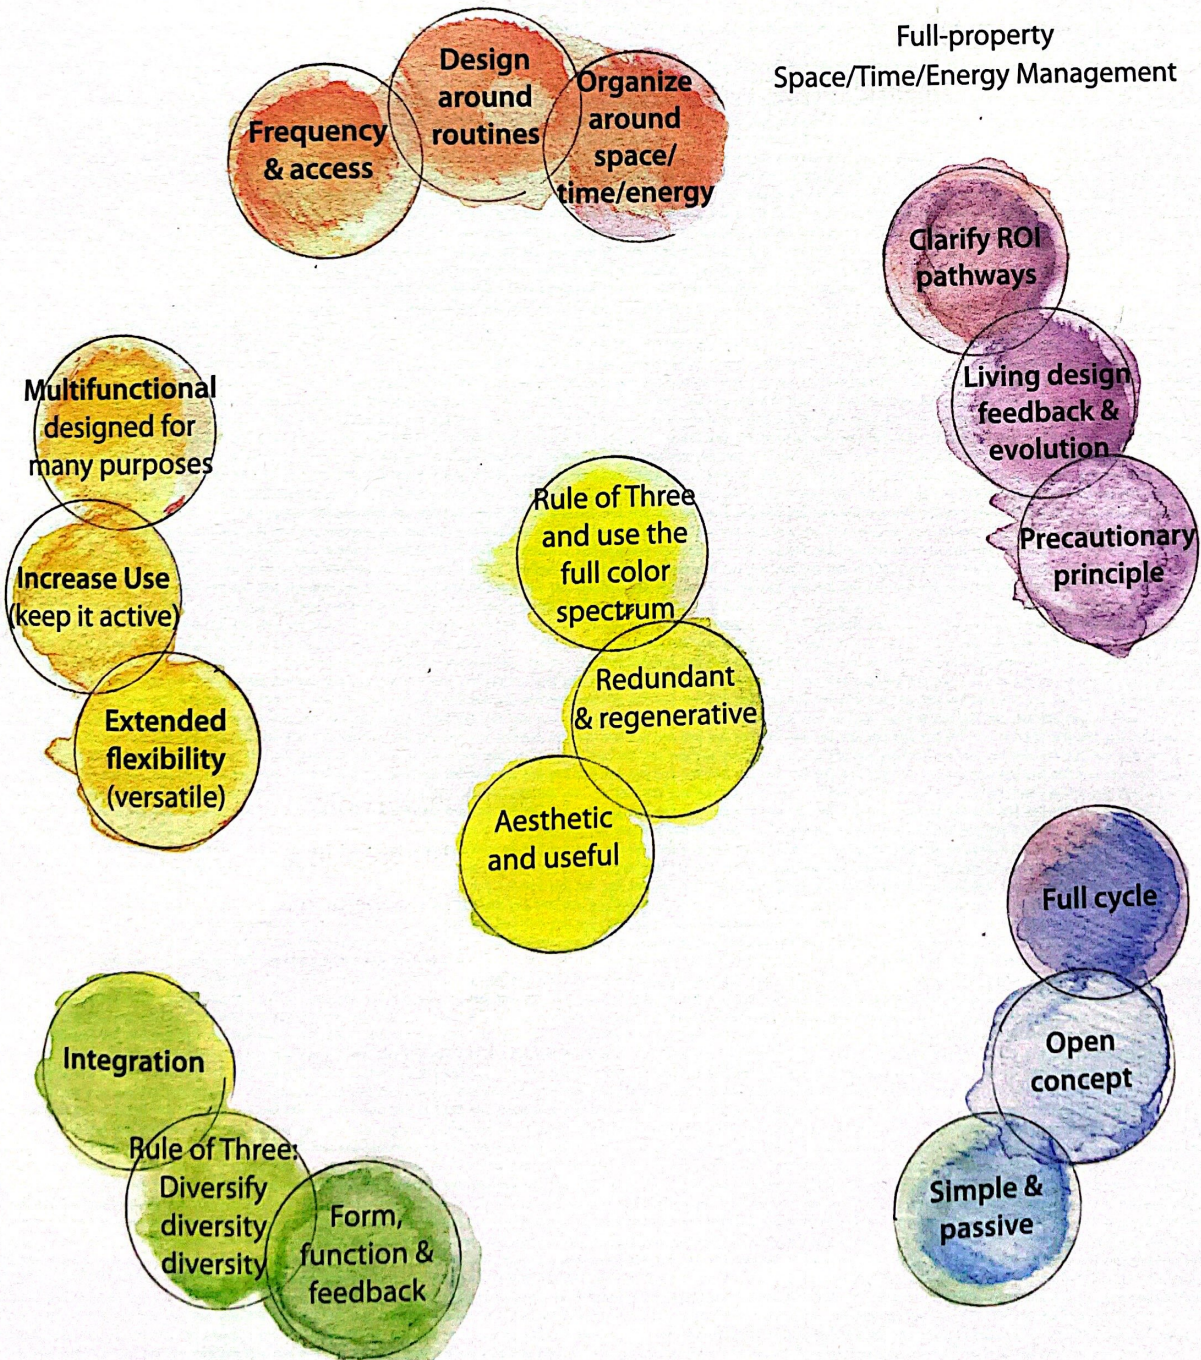 Full-property
Space/Time/Energy Management
Frequency
& access
Design
around
routines
Organize
around
space/
time/energy
Clarify ROI
pathways
Living design
feedback &
evolution
Precautionary
principle
Multifunctional
designed for
many purposes
Increase Use
(keep it active)
Extended
flexibility
(versatile)
Rule of Three
and use the
full color
spectrum
Redundant
& regenerative
Aesthetic
and useful
Full cycle
Open
concept
Simple &
passive
Integration
Rule of Three:
Diversify
diversity
diversity
Form,
function &
feedback